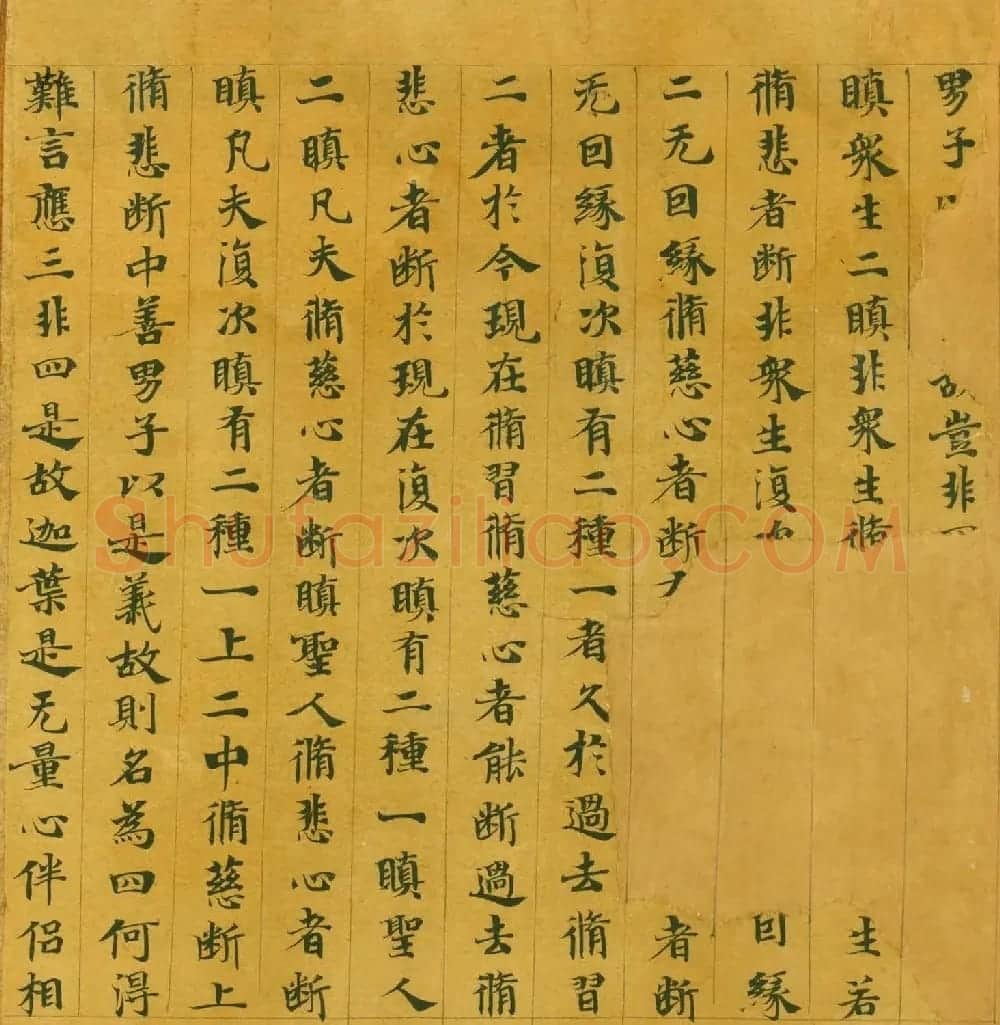 男子 豈非
瞋衆生二瞋非衆生脩 生若
脩悲者断非衆生復 回緣
二无回緣脩慈心者断 者断
无回緣復次瞋有二種一者久於過去脩習
二者於今現在脩習脩慈心者能断過去脩
悲心者断於現在復次瞋有二種一瞋聖人
二瞋凡夫脩慈心者断瞋聖人脩悲心者断
瞋凡夫復次瞋有二種一上二中脩慈断上
脩悲断中善男子以是義故則名為四何淂
難言應三非四是故迦葉是无量心伴侶相
Shufaziliao.COM